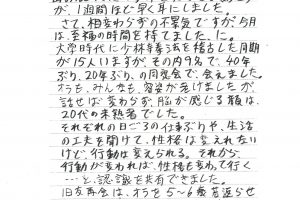 が、1週間ほど早く耳にしました。
さて、相変わらずの不景気ですが、5月
は、至福の時間を持てました。に。
大学時代に少林寺拳法を稽古した同期
が15人いますが、その内9名で、40年
ぶり、20年ぶり、の同窓会で、会えました。
オラも、みんなも、容姿が老けましたが
話せば変わらず、脳が感じる齢は、
20代の未熟者でした。
それぞれの日ごろの仕事ぶりや、生活
の工夫を聞けて、性格は変えれない
けど、行動は変えられる。それから
行動が変われば、性格も変わって行く
…と、認識を共有できました。
旧友再会は、オラを5～6歳を返らせ